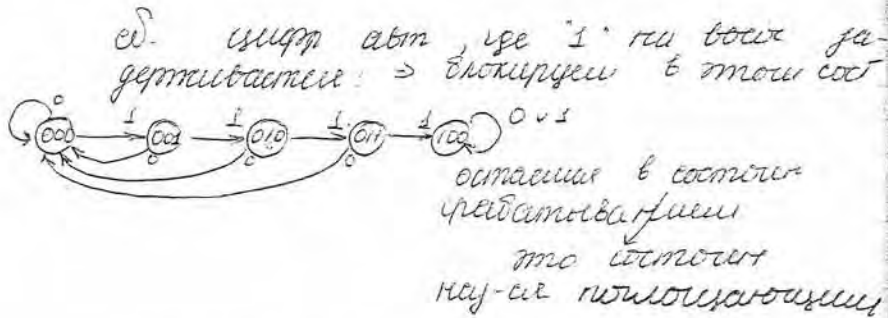 цифр авт, где "1" на вых за-
держивается: ⇒ блокируем в этом сост
0
1 1 1 1 0 v 1
000 001 010 011 100
0 0 0
остаемся в состоян
срабатывания
это состоян
наз-ся поглощающим